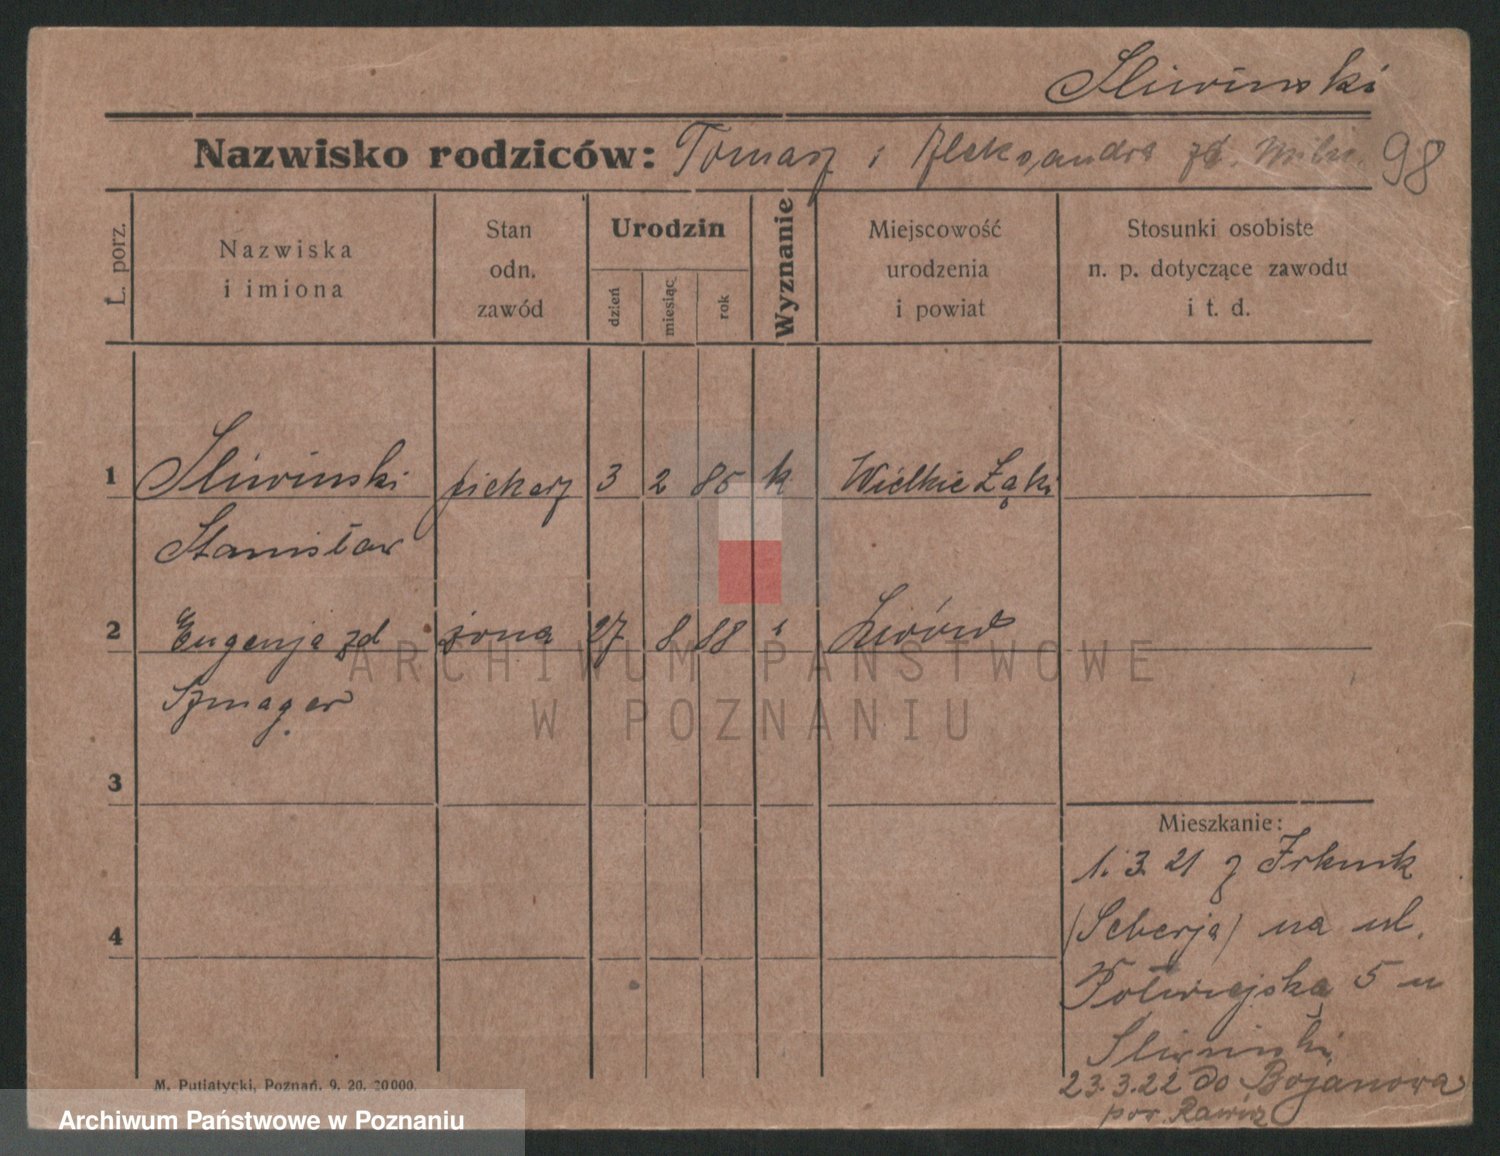 Sliwinski
Nazwisko rodziców: Tomasz i Aleksandra zd.
98
L. porz.
Nazwiska
i imiona
Stan
odn.
zawód
Urodzin
dzień
miesiąc
rok
Wyznanie
Miejscowość
urodzenia
i powiat
Stosunki osobiste
n. p. dotyczące zawodu
i t. d.
1 Sliwinski piekarz 3 2 85 k Wielkie Łąki
Stanisław
2 Eugenja zd żona 27 8 88 Lwów
Szmager
3
4
Mieszkanie:
1. 3. 21 z Irkuck
(Seberja) na ul.
Półwiejską 5 u
Sliwinski
23.3.22 do Bojanowa
pow. Rawicz
M. Putiatycki, Poznań. 9. 20. 20000.
ARCHIWUM PAŃSTWOWE
W POZNANIU
Archiwum Państwowe w Poznaniu